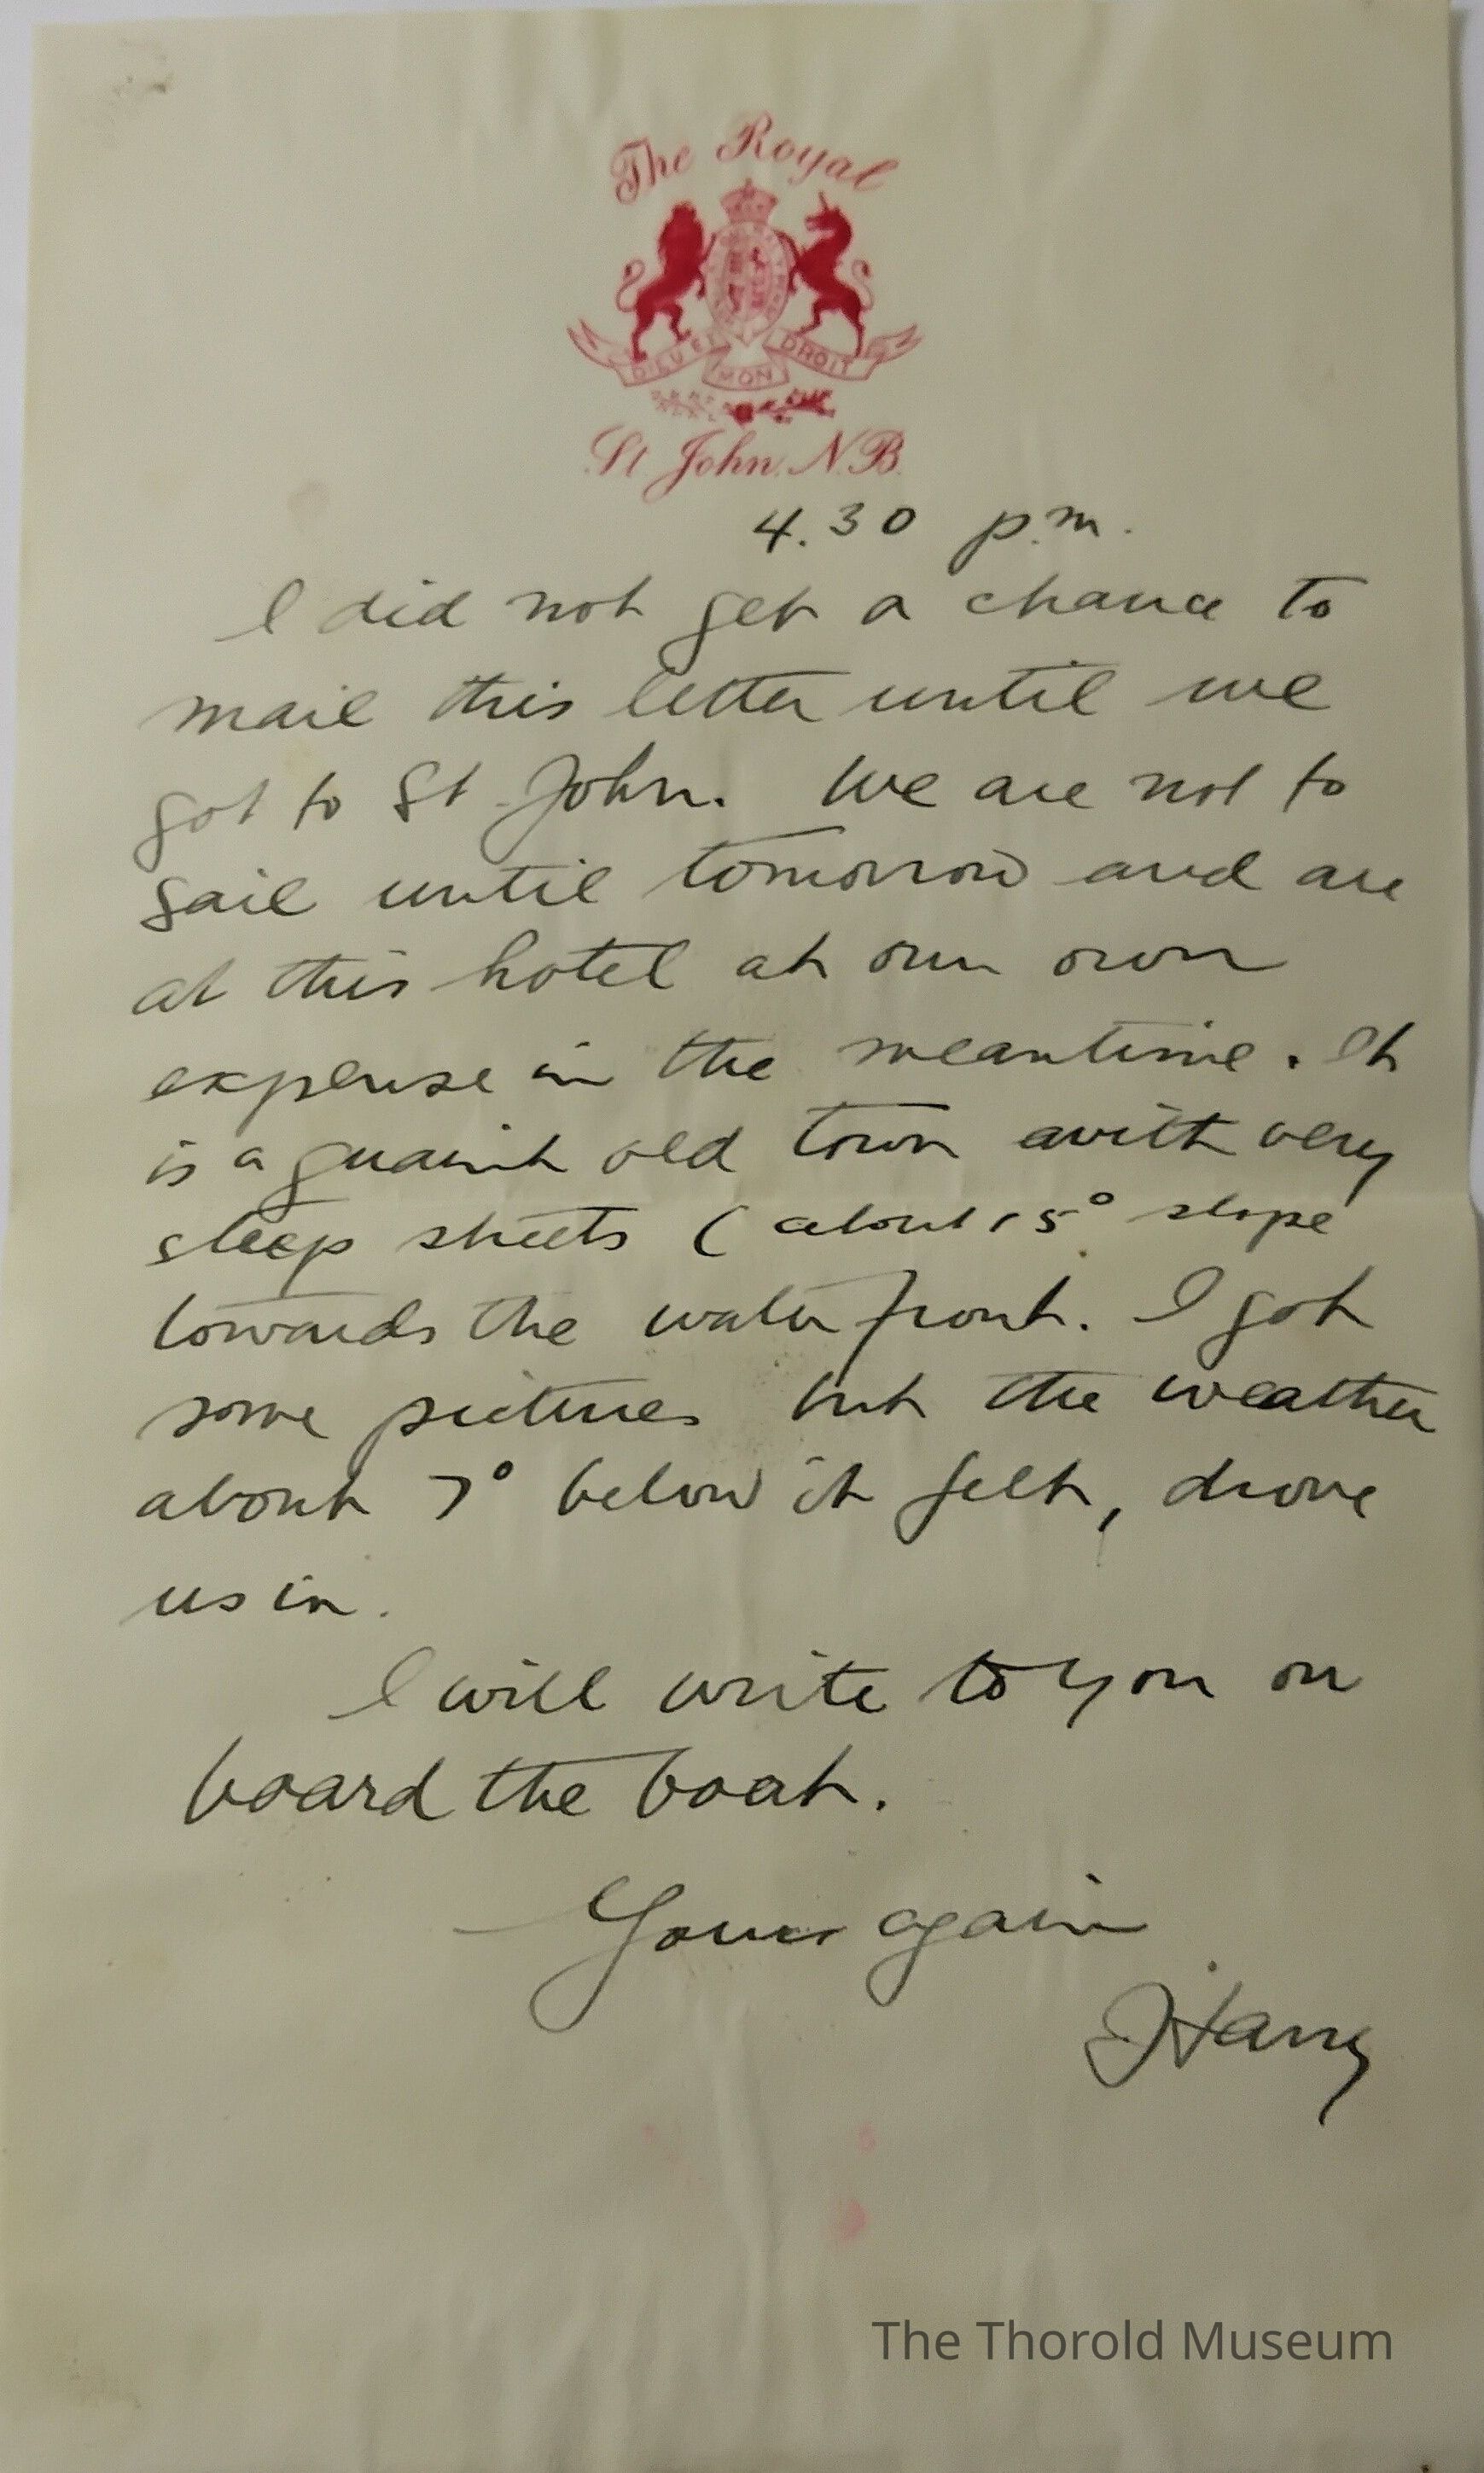 The Royal
DIEU ET MON DROIT
St John. N.B.
4.30 p.m.
I did not get a chance to
mail this letter until we
got to St. John. We are not to
sail until tomorrow and are
at this hotel at our own
expense in the meantime. It
is a quaint old town with very
steep streets (about 15° slope
towards the water front. I got
some pictures but the weather
about 7° below it felt, drove
us in.
I will write to you on
board the boat.
Yours again
Harry
The Thorold Museum